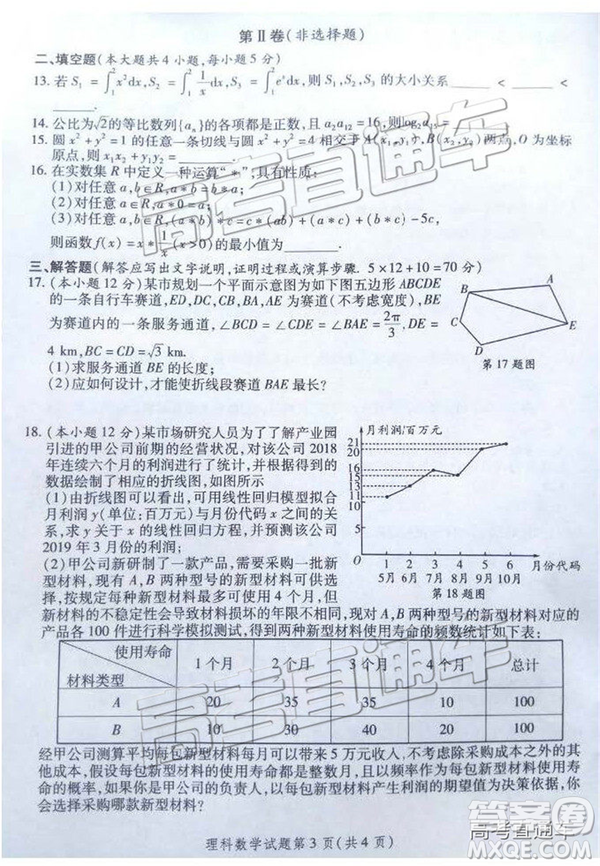 第Ⅱ卷(非选择题)
二、填空题(本大题共4小题,每小题5分)
13. 若 S₁ = ∫₁² x²dx, S₂ = ∫₁² 1/x dx, S₃ = ∫₁² eˣdx, 则 S₁, S₂, S₃ 的大小关系____ < ____ <
____.
14. 公比为√2的等比数列{aₙ}的各项都是正数,且 a₂a₁₂ = 16,则
15. 圆 x² + y² = 1 的任意一条切线与圆 x² + y² = 4 相交于 A(x₁,y₁), B(x₂,y₂) 两点, O 为坐标
原点,则 x₁x₂ + y₁y₂ = ____.
16. 在实数集 R 中定义一种运算“*”,具有性质:
(1)对任意 a,b∈R, a*b = b*a;
(2)对任意
(3)对任意 a,b∈R, (a*b)*c = c*(ab) + (a*c) + (b*c) - 5c,
则函数 f(x) = x * 1/x (x>0) 的最小值为____.
三、解答题(解答应写出文字说明,证明过程或演算步骤. 5×12+10=70分)
17. (本小题12分)某市规划一个平面示意图为如下图五边形 ABCDE
的一条自行车赛道, ED, DC, CB, BA, AE 为赛道(不考虑宽度), BE
为赛道内的一条服务通道, ∠BCD = ∠CDE = ∠BAE = 2π/3, DE =
4 km, BC = CD = √3 km.
(1)求服务通道 BE 的长度;
(2)应如何设计,才能使折线段赛道 BAE 最长?
A
B
C
D
E
第17题图
18. (本小题12分)某市场研究人员为了了解产业园
引进的甲公司前期的经营状况,对该公司2018
年连续六个月的利润进行了统计,并根据得到的
数据绘制了相应的折线图,如图所示
(1)由折线图可以看出,可用线性回归模型拟合
月利润 y (单位:百万元)与月份代码 x 之间的关
系,求 y 关于 x 的线性回归方程,并预测该公司
2019年3月份的利润;
(2)甲公司新研制了一款产品,需要采购一批新
型材料,现有 A, B 两种型号的新型材料可供选
择,按规定每种新型材料最多可使用4个月,但
新材料的不稳定性会导致材料损坏的年限不相同,现对 A, B 两种型号的新型材料对应的
产品各100件进行科学模拟测试,得到两种新型材料使用寿命的频数统计如下表:
月利润/百万元
21
20
16
15
13
11
1 2 3 4 5 6 月份代码
5月 6月 7月 8月 9月 10月
第18题图
使用寿命 1个月 2个月 3个月 4个月 总计
材料类型
A 20 35 35 10 100
B 10 30 40 20 100
经甲公司测算平均每包新型材料每月可以带来5万元收入,不考虑除采购成本之外的其
他成本,假设每包新型材料的使用寿命都是整数月,且以频率作为每包新型材料使用寿命
的概率,如果你是甲公司的负责人,以每包新型材料产生利润的期望值为决策依据,你会
选择采购哪款新型材料?
理科数学试题第3页(共4页)
高考直通车
高考直通车
高考直通车